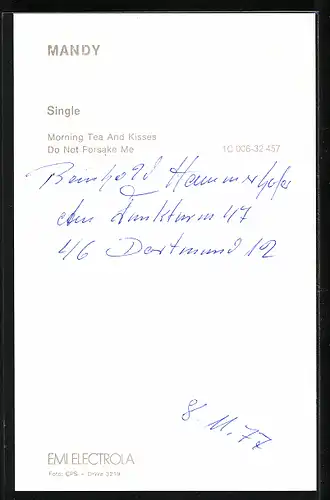 MANDY
Single
Morning Tea And Kisses
Do Not Forsake Me 1C 006-32 457
Reinhold Hammerhofer
Am Funkturm 47
46 Dortmund 12
8.11.77
EMI ELECTROLA
Foto: CPS -